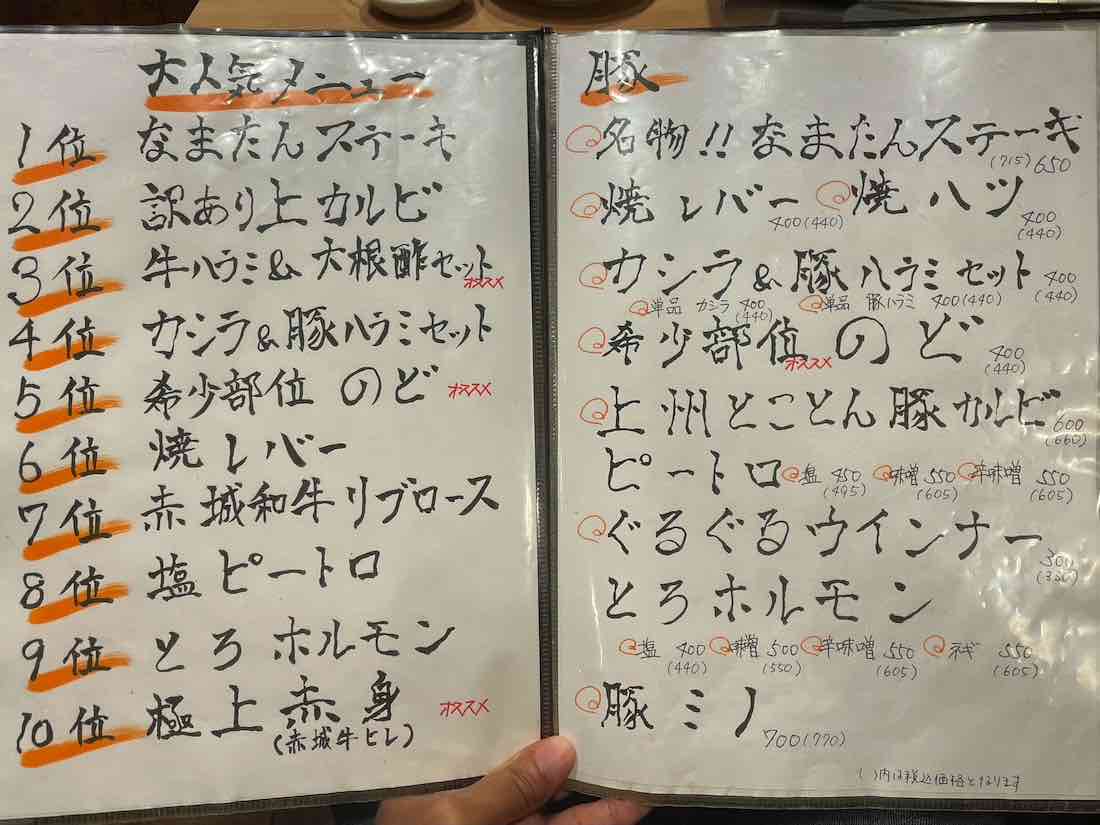 大人気メニュー
1位 なまたんステーキ
2位 訳あり上カルビ
3位 牛ハラミ&大根酢セット オススメ
4位 カシラ&豚ハラミセット
5位 希少部位 のど オススメ
6位 焼レバー
7位 赤城和牛リブロース
8位 塩ピートロ
9位 とろホルモン
10位 極上赤身 オススメ
(赤城牛ヒレ)
豚
名物!! なまたんステーキ
(715) 650
焼レバー 400(440) 焼ハツ 400
(440)
カシラ&豚ハラミセット 400
(440)
単品 カシラ 400 単品 豚ハラミ 400(440)
(440)
希少部位 のど オススメ 400
(440)
上州とことん豚カルビ 600
(660)
ピートロ 塩 450 味噌 550 辛味噌 550
(495) (605) (605)
ぐるぐるウインナー
300
とろホルモン
塩 400 味噌 500 辛味噌 550 ネギ 550
(440) (550) (605) (605)
豚ミノ 700(770)
( )内は税込価格となります